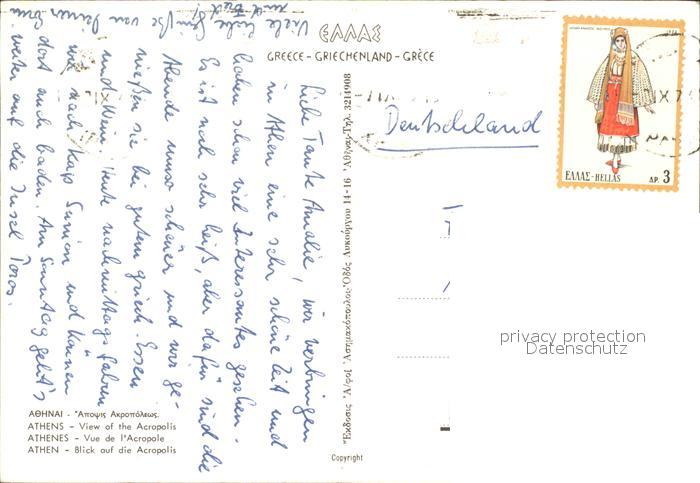 ΕΛΛΑΣ
GREECE - GRIECHENLAND - GRÈCE
Liebe Tante Amalie, wir verbringen
in Athen eine sehr schöne Zeit und
haben schon viel Interessantes gesehen.
Es ist noch sehr heiß, aber dafür sind die
Abende umso schöner und wir ge-
nießen sie bei gutem griech. Essen
und Wein. Heute nachmittags fahren
wir nach Kap Sunion und können
dort auch baden. Am Sonntag geht's
weiter auf die Insel Poros.
Viele liebe Grüße von Deiner
und Fred!
Deutschland
ΕΛΛΑΣ-HELLAS
ΔΡ. 3
Ἔκδοσις Ἀφοί Ἀσημακόπουλοι-Ὁδὸς Λυκούργου 14-16 Ἀθῆναι-Τηλ. 3214908
privacy protection
Datenschutz
ΑΘΗΝΑΙ - Ἄποψις Ἀκροπόλεως.
ATHENS - View of the Acropolis
ATHENES - Vue de l'Acropole
ATHEN - Blick auf die Acropolis
Copyright